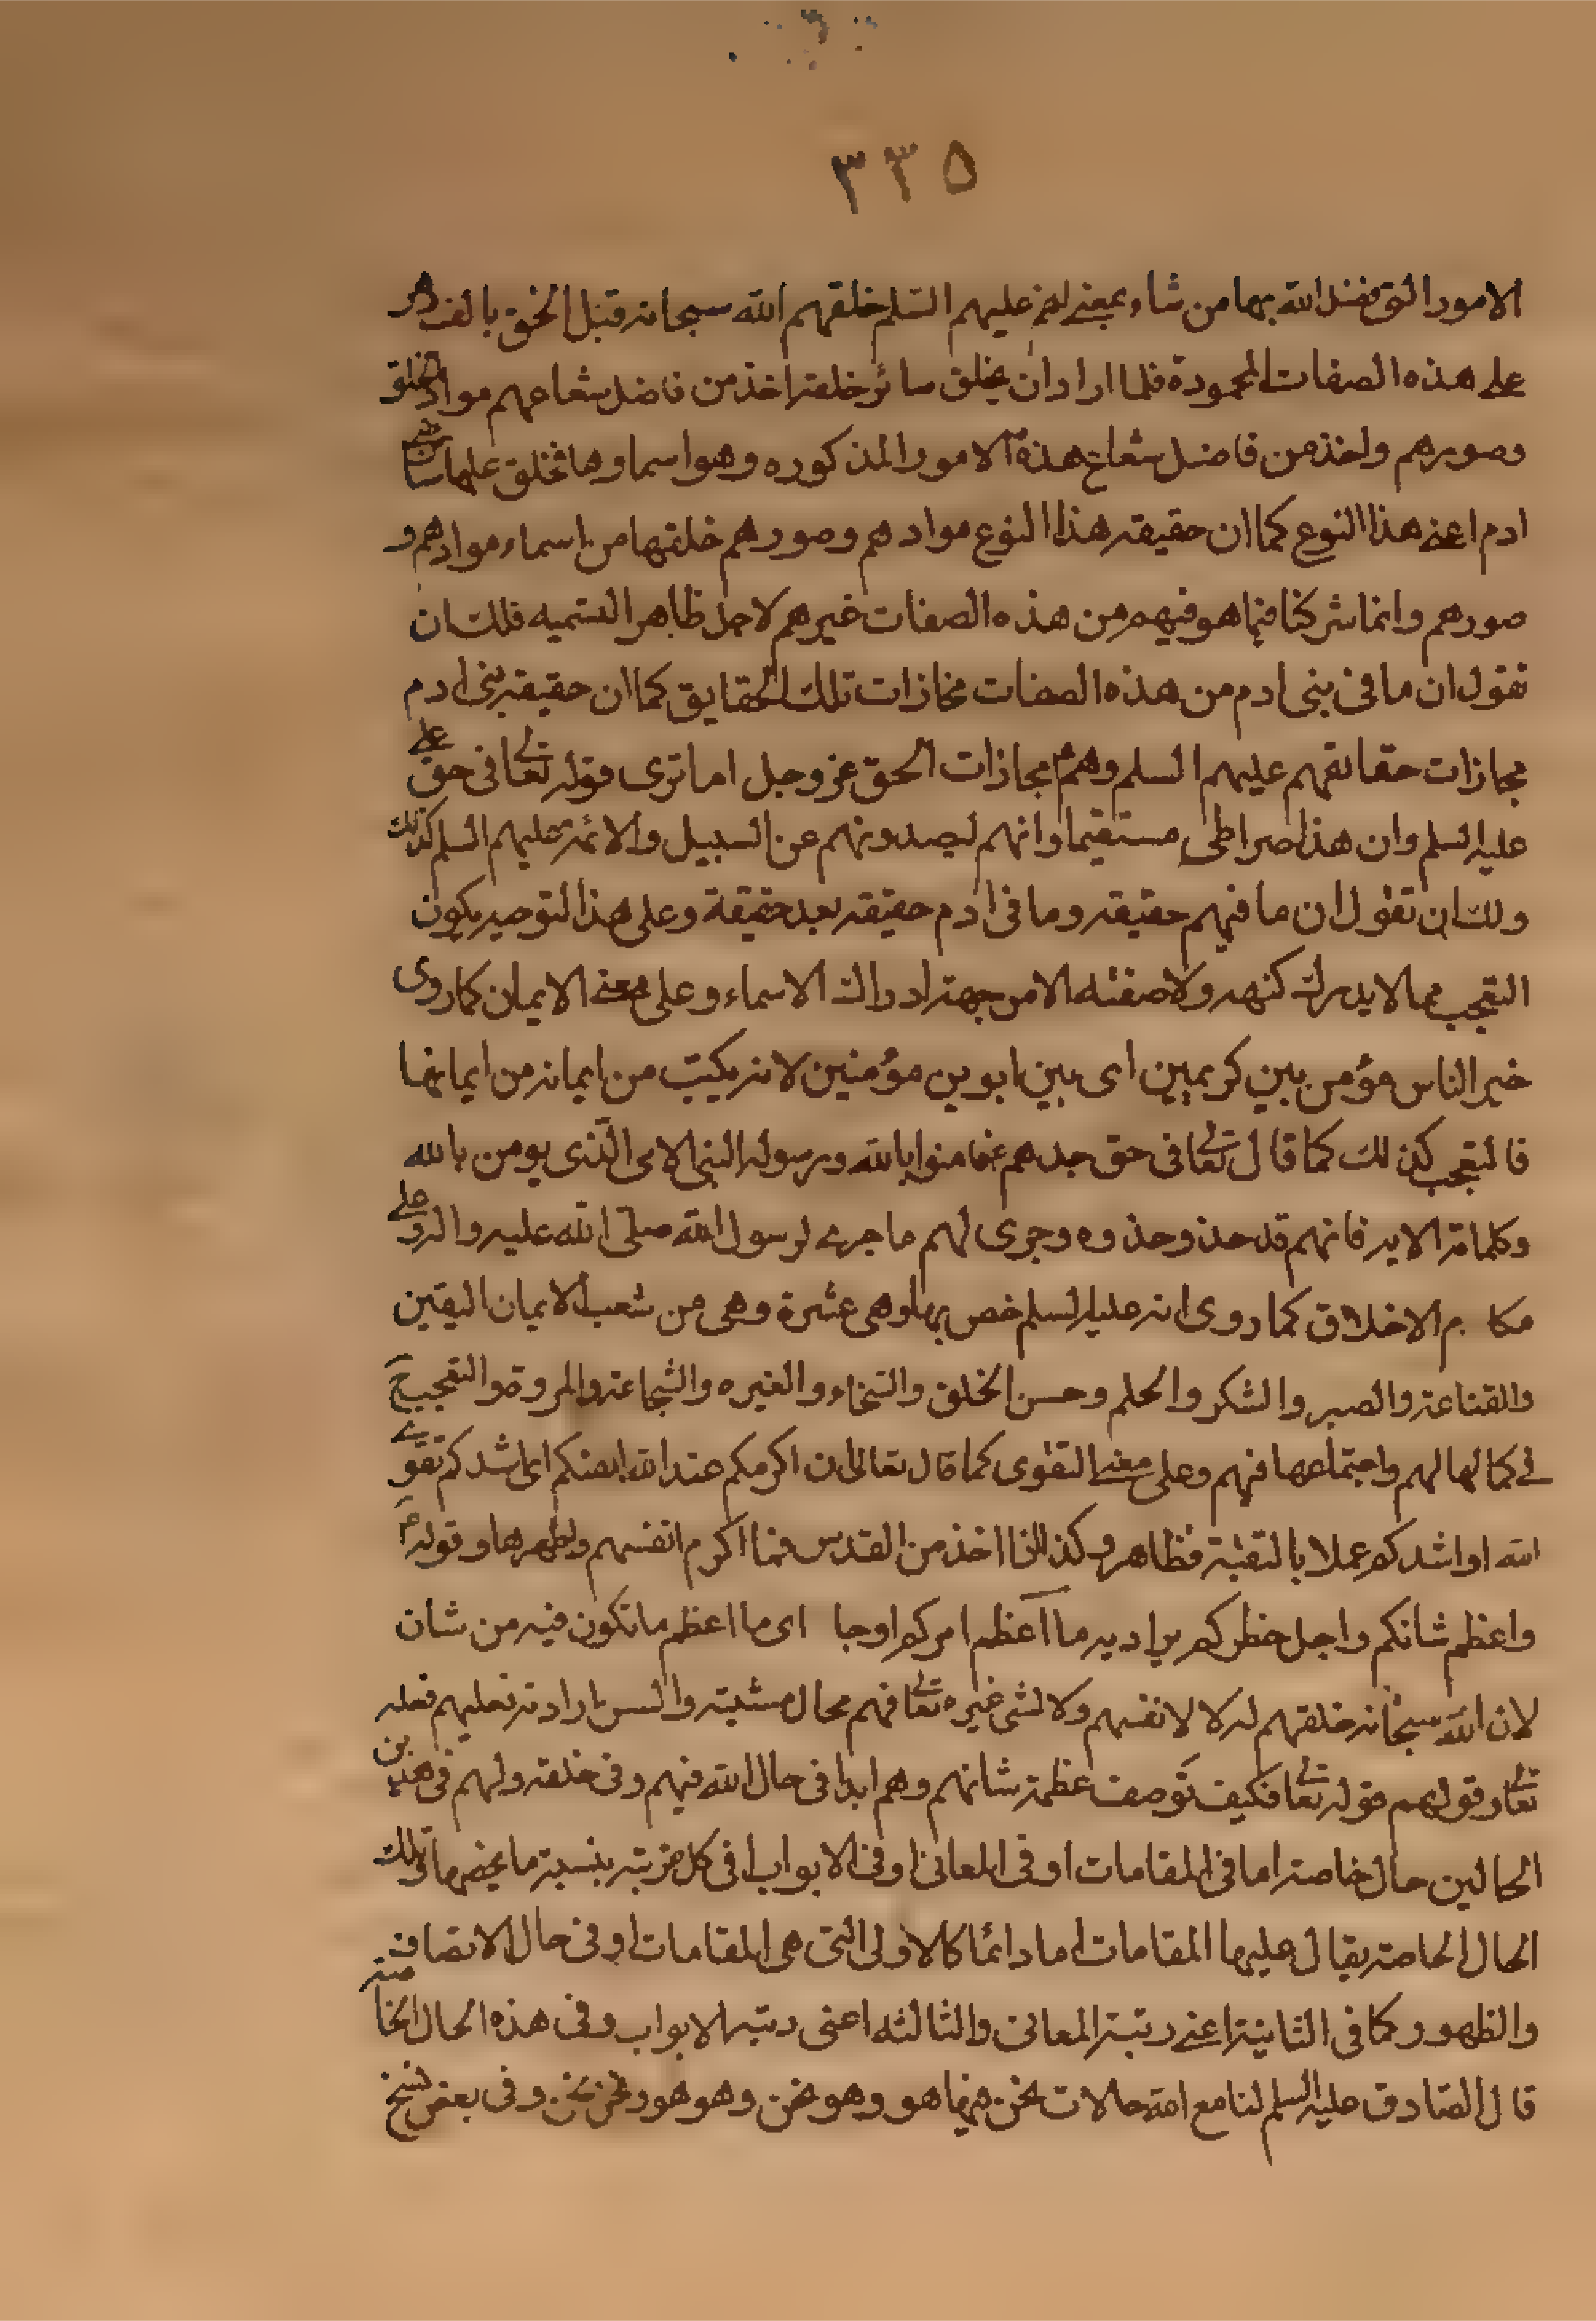 ٣٣٥
الامور التى فضل الله بها من شاء بمعنى انهم عليهم السلم خلقهم الله سبحانه قبل الخلق بالف دهر
على هذه الصفات المحمودة فلما اراد ان يخلق سائر خلقه اخذ من فاضل شعاعهم مواد الخلق
وصورهم واخذ من فاضل شعاع هذه الامور المذكوره وهو اسماوها فخلق عليها
ادم اعنى هذا النوع كما ان حقيقه هذا النوع موادهم وصورهم خلقها من اسماء موادهم و
صورهم وانما شركنا فيما هو فيهم من هذه الصفات غيرهم لاجل ظاهر التسميه فلك ان
تقول ان ما فى بنى ادم من هذه الصفات مجازات تلك الحقايق كما ان حقيقه بنى ادم
مجازات حقائقهم عليهم السلم وهم مجازات الحق عز وجل اما ترى قوله تعالى فى حق على
عليه السلم وان هذا صراطى مستقيما وانهم ليصدونهم عن السبيل والائمه عليهم السلم كذلك
ولك ان تقول ان ما فيهم حقيقه وما فى ادم حقيقه بعد حقيقة وعلى هذا التوجيه يكون
التعجب مما لا يدرك كنهه ولا صفته الا من جهة ادراك الاسماء وعلى معنى الايمان كما روى
خير الناس مؤمن بين كريمين اى بين ابوين مؤمنين لانه يكتب من ايمانه من ايمانهما
فالتعجب كذلك كما قال تعالى فى حق جدهم فامنوا بالله ورسوله النبى الامى الذى يومن بالله
وكلماته الايه فانهم قد حذو حذوه وجرى لهم ما جرى لرسول الله صلى الله عليه واله وعلى
مكا رم الاخلاق كما روى انه عليه السلم خص بها وهى عشرة وهى من شعب الايمان اليقين
والقناعة والصبر والشكر والحلم وحسن الخلق والسخاء والغيره والشجاعة والمروة والتعجب ح
فى كمالها لهم واجتماعها فيهم وعلى معنى التقوى كما قال تعالى ان اكرمكم عند الله اتقيكم اى اشدكم تقوى
الله او اشدكم عملا بالتقية فظاهر وكذا اذا اخذ من القدس فما اكرم انفسهم واطهرها وقوله
واعظم شانكم واجل خطركم يراد به ما اعظم امركم او حا اى ما اعظم ما تكون فيه من شان
لان الله سبحانه خلقهم له لا لانفسهم ولا لشى غيره تعالى فهم محال مشيته والسن ارادته فعليهم فعله
تعالى وقولهم قوله تعالى فكيف توصف عظمة شانهم وهم ابدا فى حال الله فيهم وفى خلقه ولهم فى هذين
الحالين حال خاصة اما فى المقامات او فى المعانى او فى الابواب فى كل مرتبه بنسبة ما يخصها تلك
الحال الخاصة يقال عليها المقامات اما دائما كالاولى التى هى المقامات او فى حال الاتصاف
والظهور كما فى الثانية اعنى رتبة المعانى والثالثه اعنى رتبه الابواب وفى هذه الحال الخاصة
قال الصادق عليه السلم لنا مع الله حالات نحن فيها هو وهو نحن وهو هو ونحن نحن وفى بعض نسخ